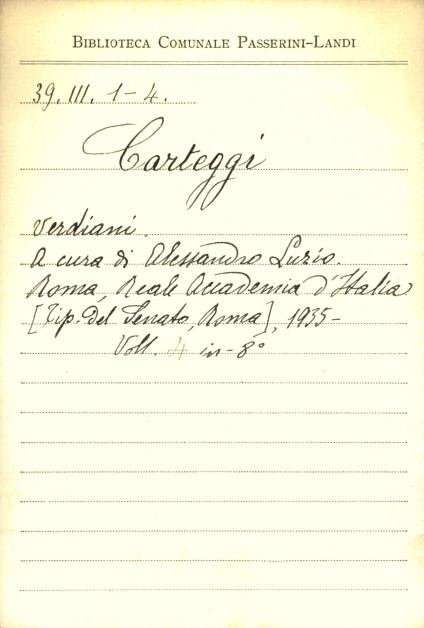 BIBLIOTECA COMUNALE PASSERINI-LANDI
39. III. 1-4.
Carteggi
verdiani.
A cura di Alessandro Luzio.
Roma, Reale Accademia d'Italia
[Tip. del Senato, Roma], 1935-
Voll. 4 in-8°